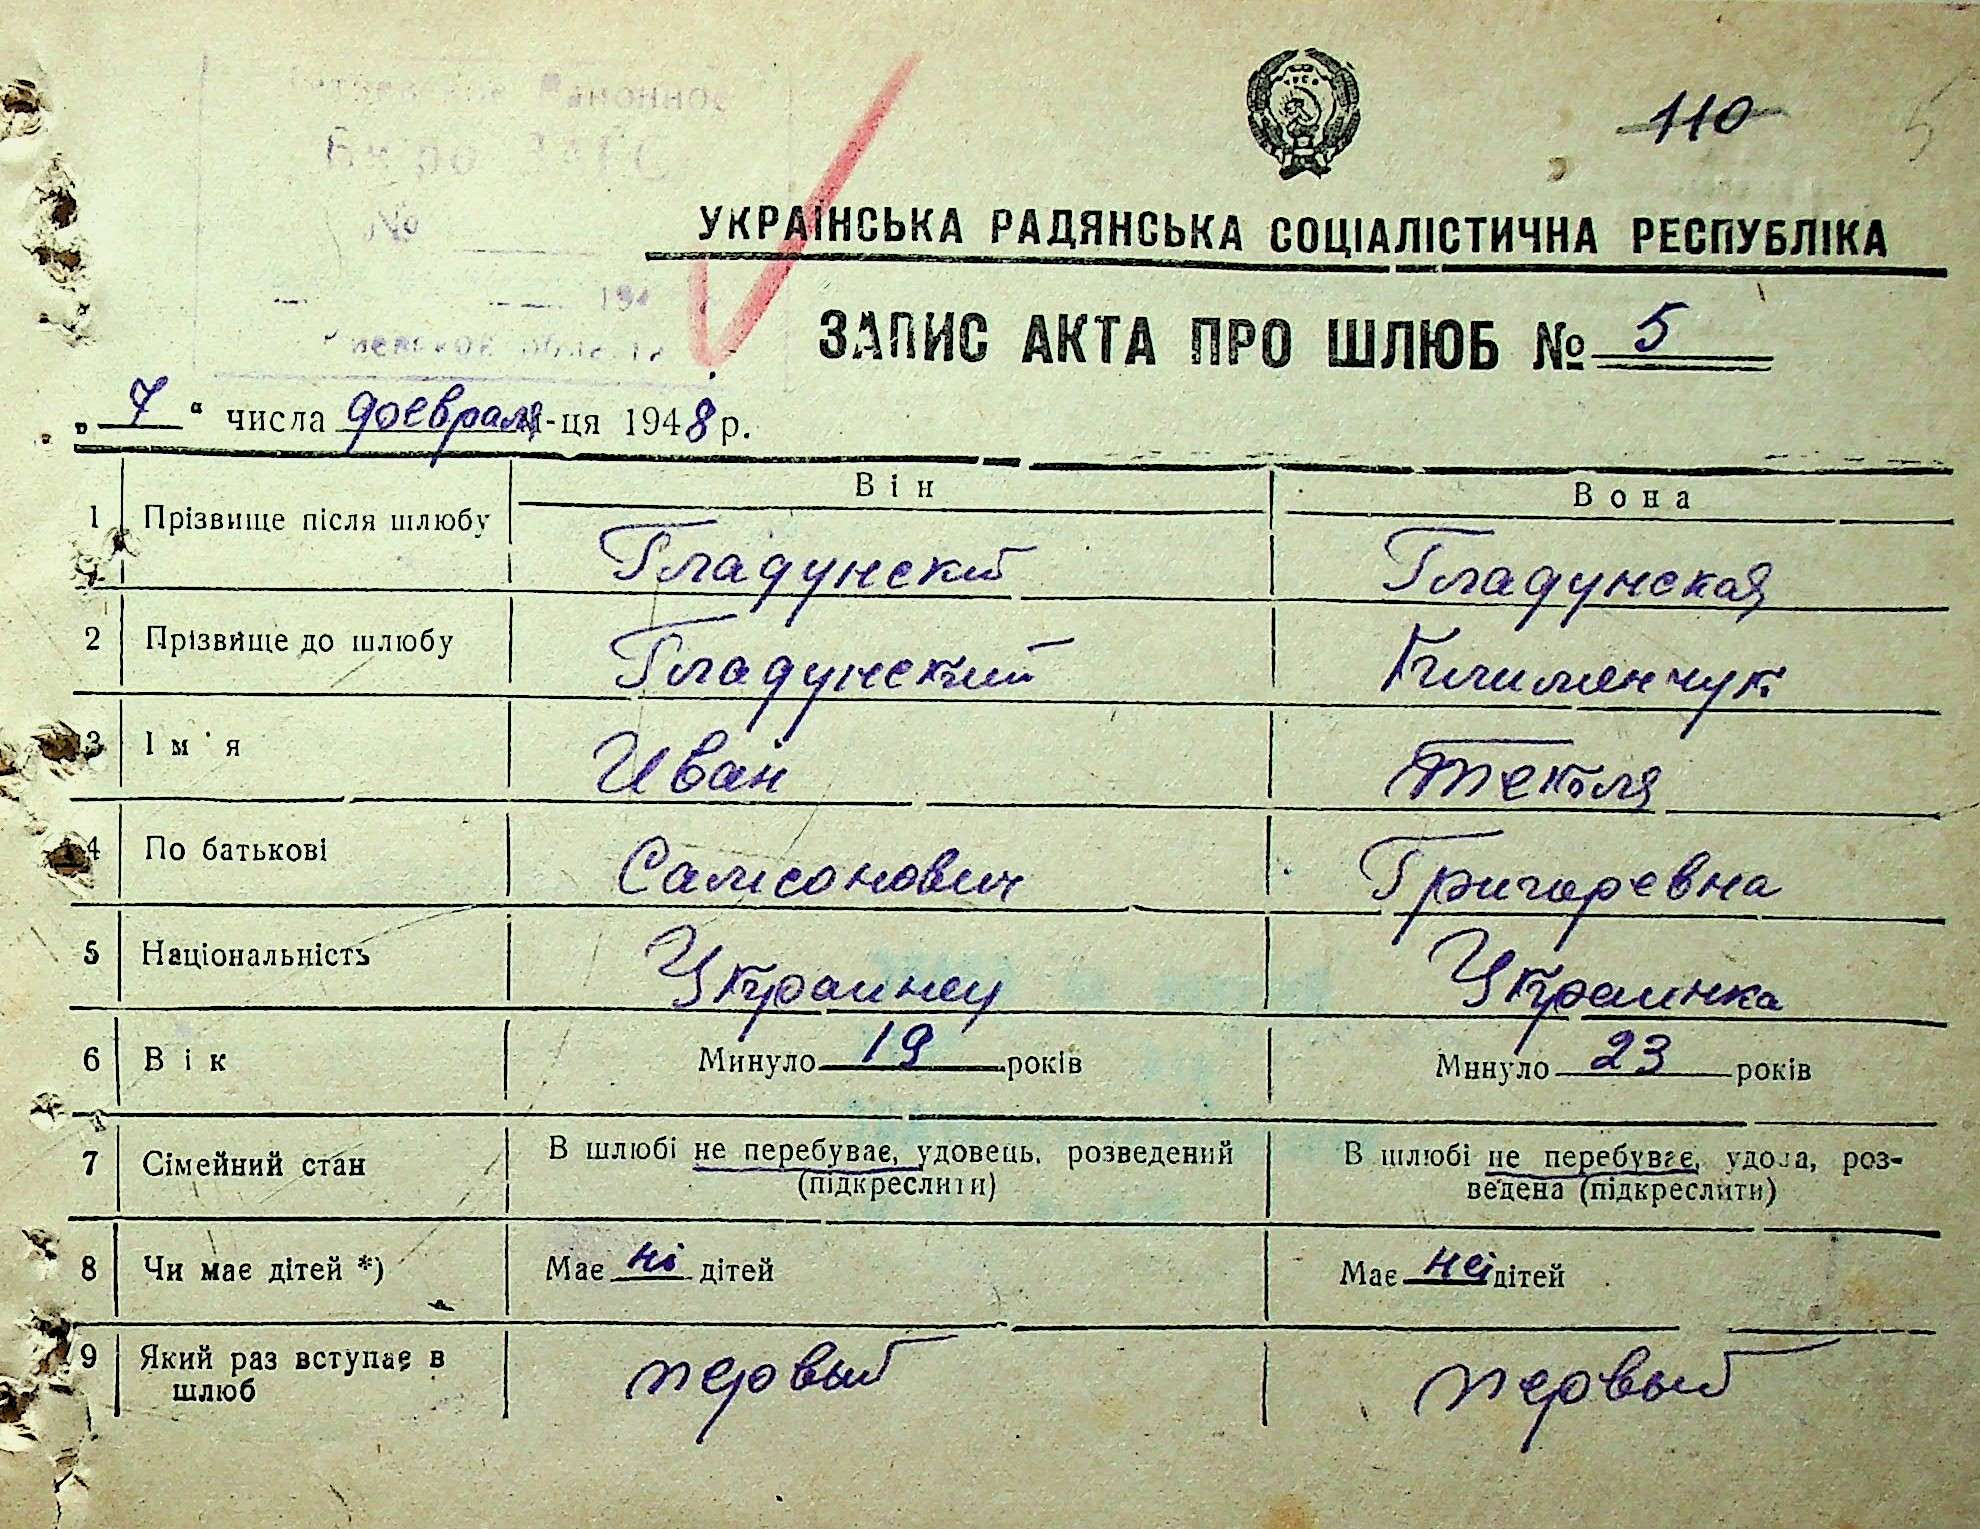 110
5
Районное
Бюро ЗАГС
№
194
Киевской области
УКРАЇНСЬКА РАДЯНСЬКА СОЦІАЛІСТИЧНА РЕСПУБЛІКА
ЗАПИС АКТА ПРО ШЛЮБ № 5
„ 7 “ числа февраля м-ця 1948 р.
Він Вона
1 Прізвище після шлюбу Гладунский Гладунская
2 Прізвище до шлюбу Гладунский Климанчук
3 Ім'я Иван Текля
4 По батькові Самсонович Григоревна
5 Національність Украинец Украинка
6 Вік Минуло 19 років Минуло 23 років
7 Сімейний стан В шлюбі не перебуває, удовець, розведений В шлюбі не перебуває, удова, роз-
(підкреслити) ведена (підкреслити)
8 Чи має дітей *) Має ні дітей Має дітей
9 Який раз вступає в первый первый
шлюб